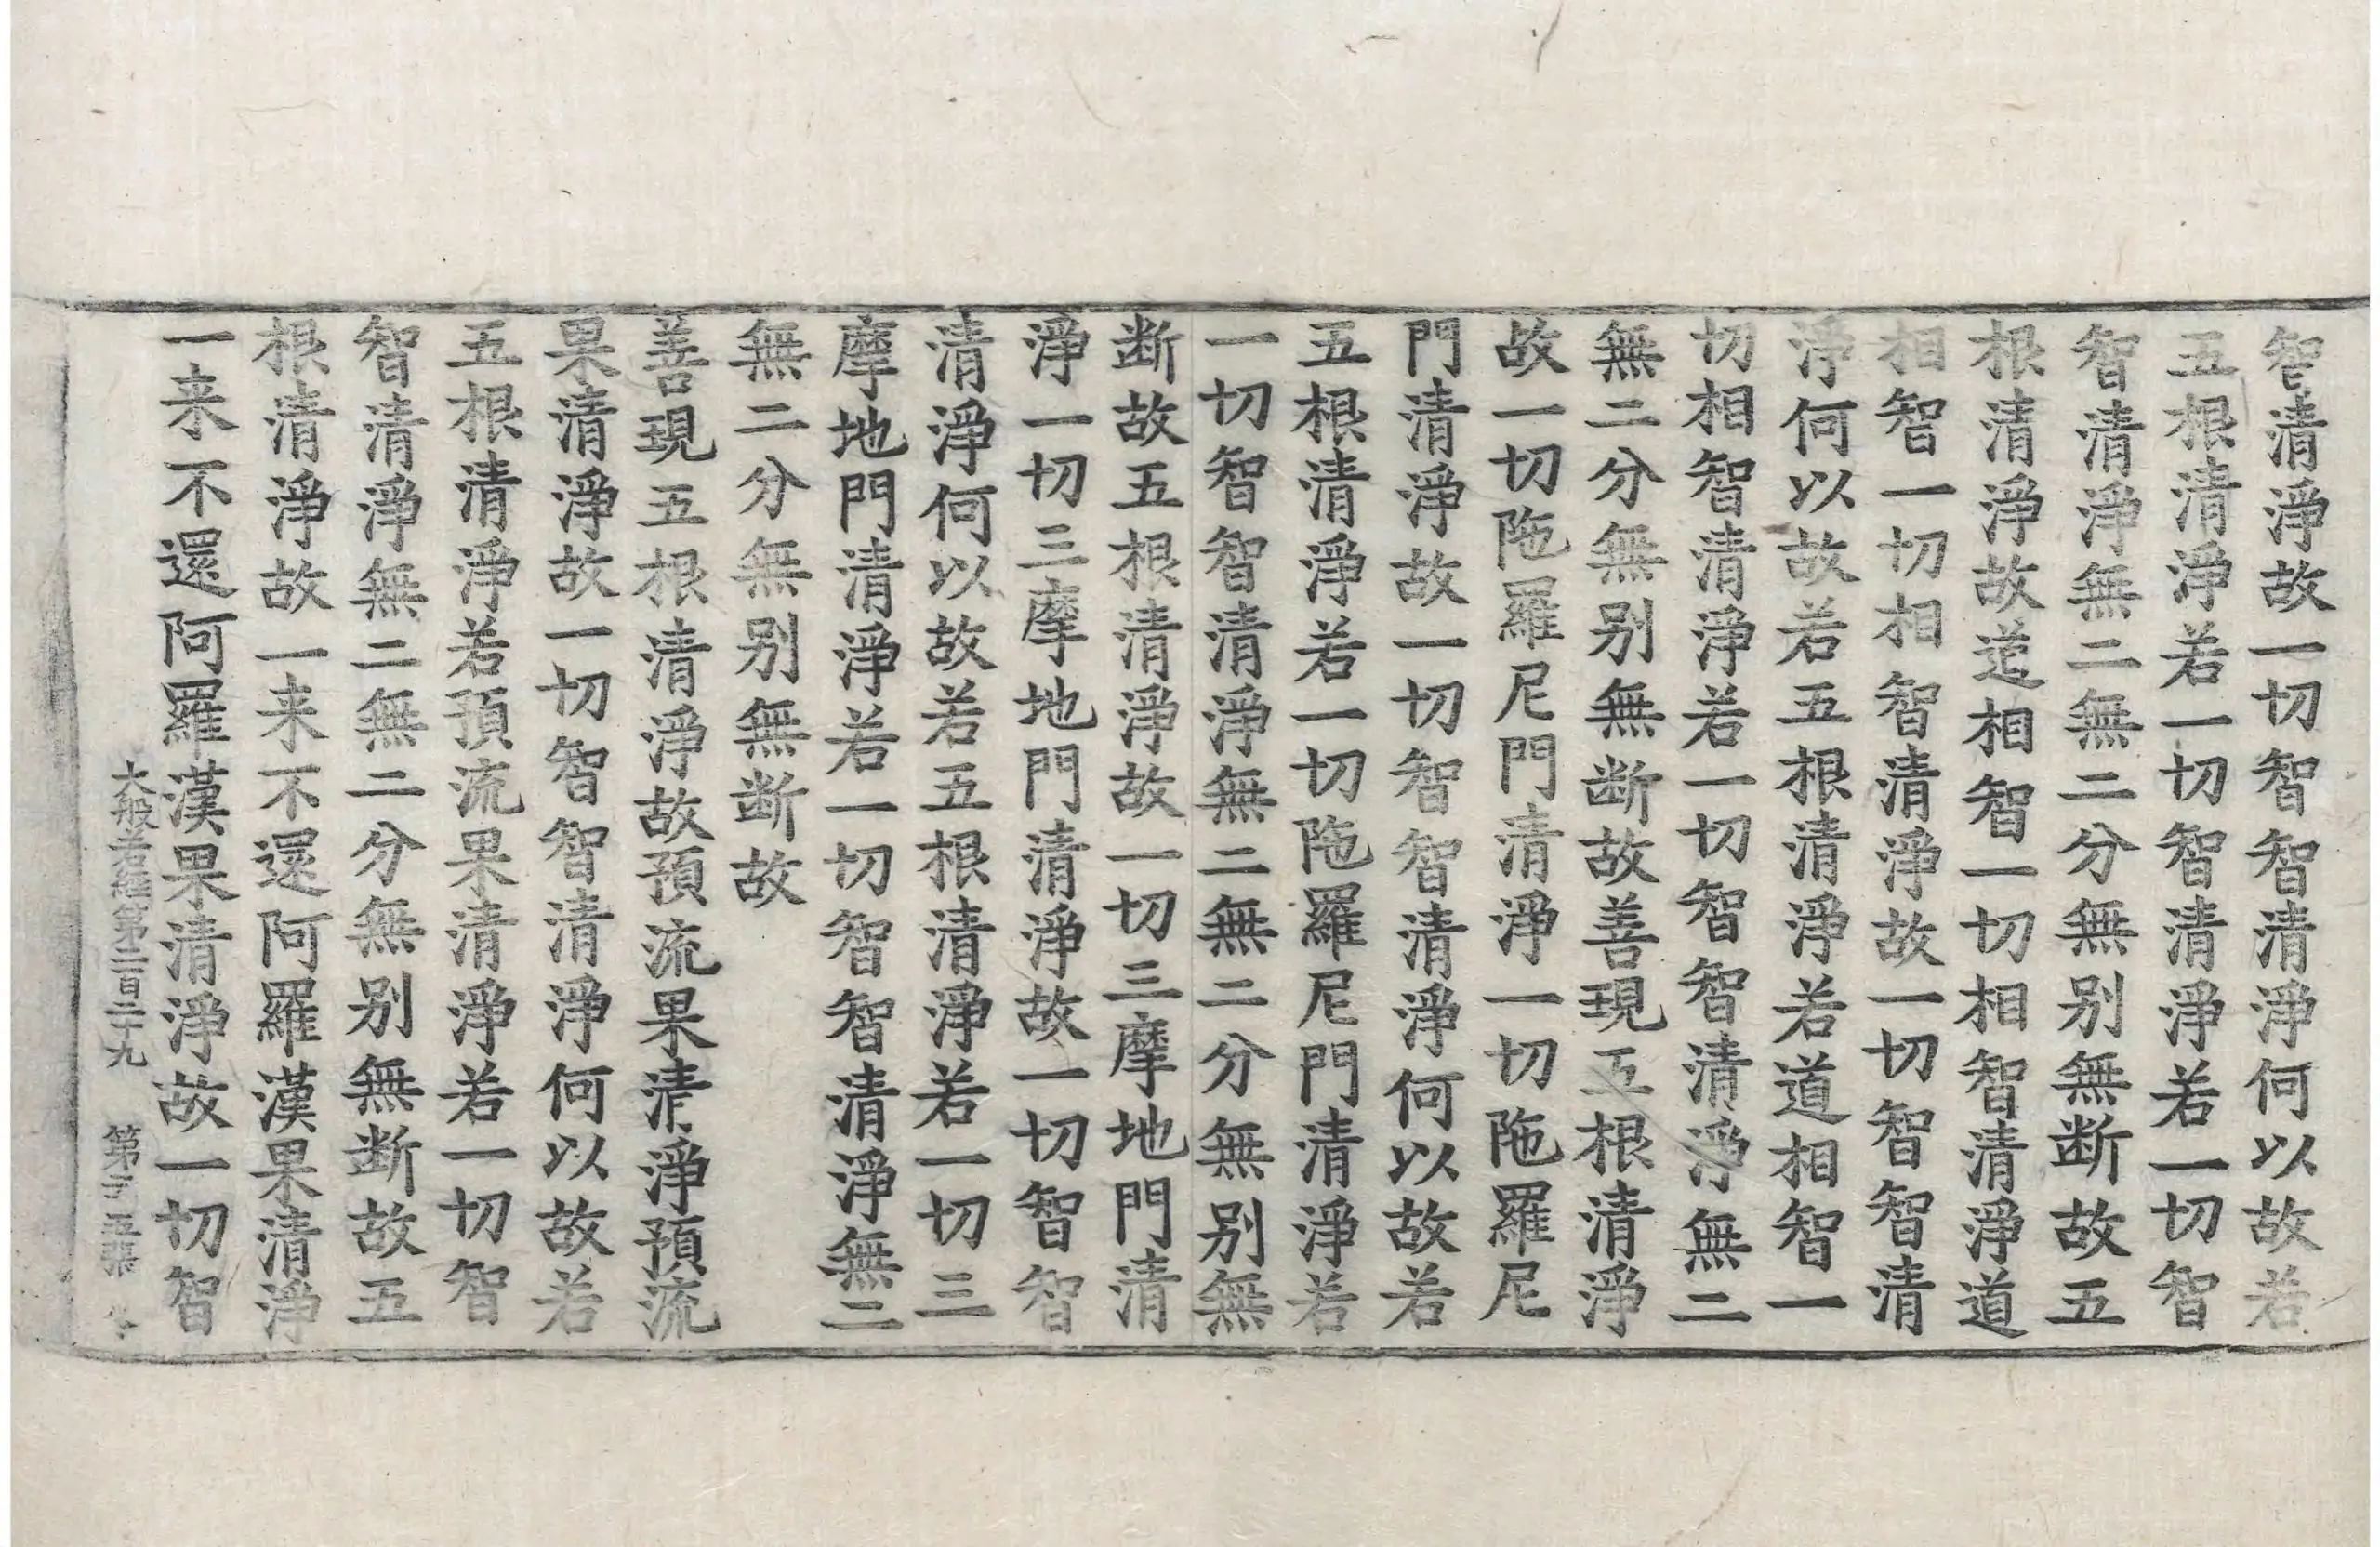 智清淨故一切智智清淨何以故若
五根清淨若一切智清淨若一切智
智清淨無二無二分無别無断故五
根清淨故道相智一切相智清淨道
相智一切相智清淨故一切智智清
淨何以故若五根清淨若道相智一
切相智清淨若一切智智清淨無二
無二分無别無断故善現五根清淨
故一切陁羅尼門清淨一切陁羅尼
門清淨故一切智智清淨何以故若
五根清淨若一切陁羅尼門清淨若
一切智智清淨無二無二分無别無
断故五根清淨故一切三摩地門清
淨一切三摩地門清淨故一切智智
清淨何以故若五根清淨若一切三
摩地門清淨若一切智智清淨無二
無二分無别無断故
善現五根清淨故預流果清淨預流
果清淨故一切智智清淨何以故若
五根清淨若預流果清淨若一切智
智清淨無二無二分無别無断故五
根清淨故一来不還阿羅漢果清淨
一来不還阿羅漢果清淨故一切智
大般若經第二百二十九 第十五張